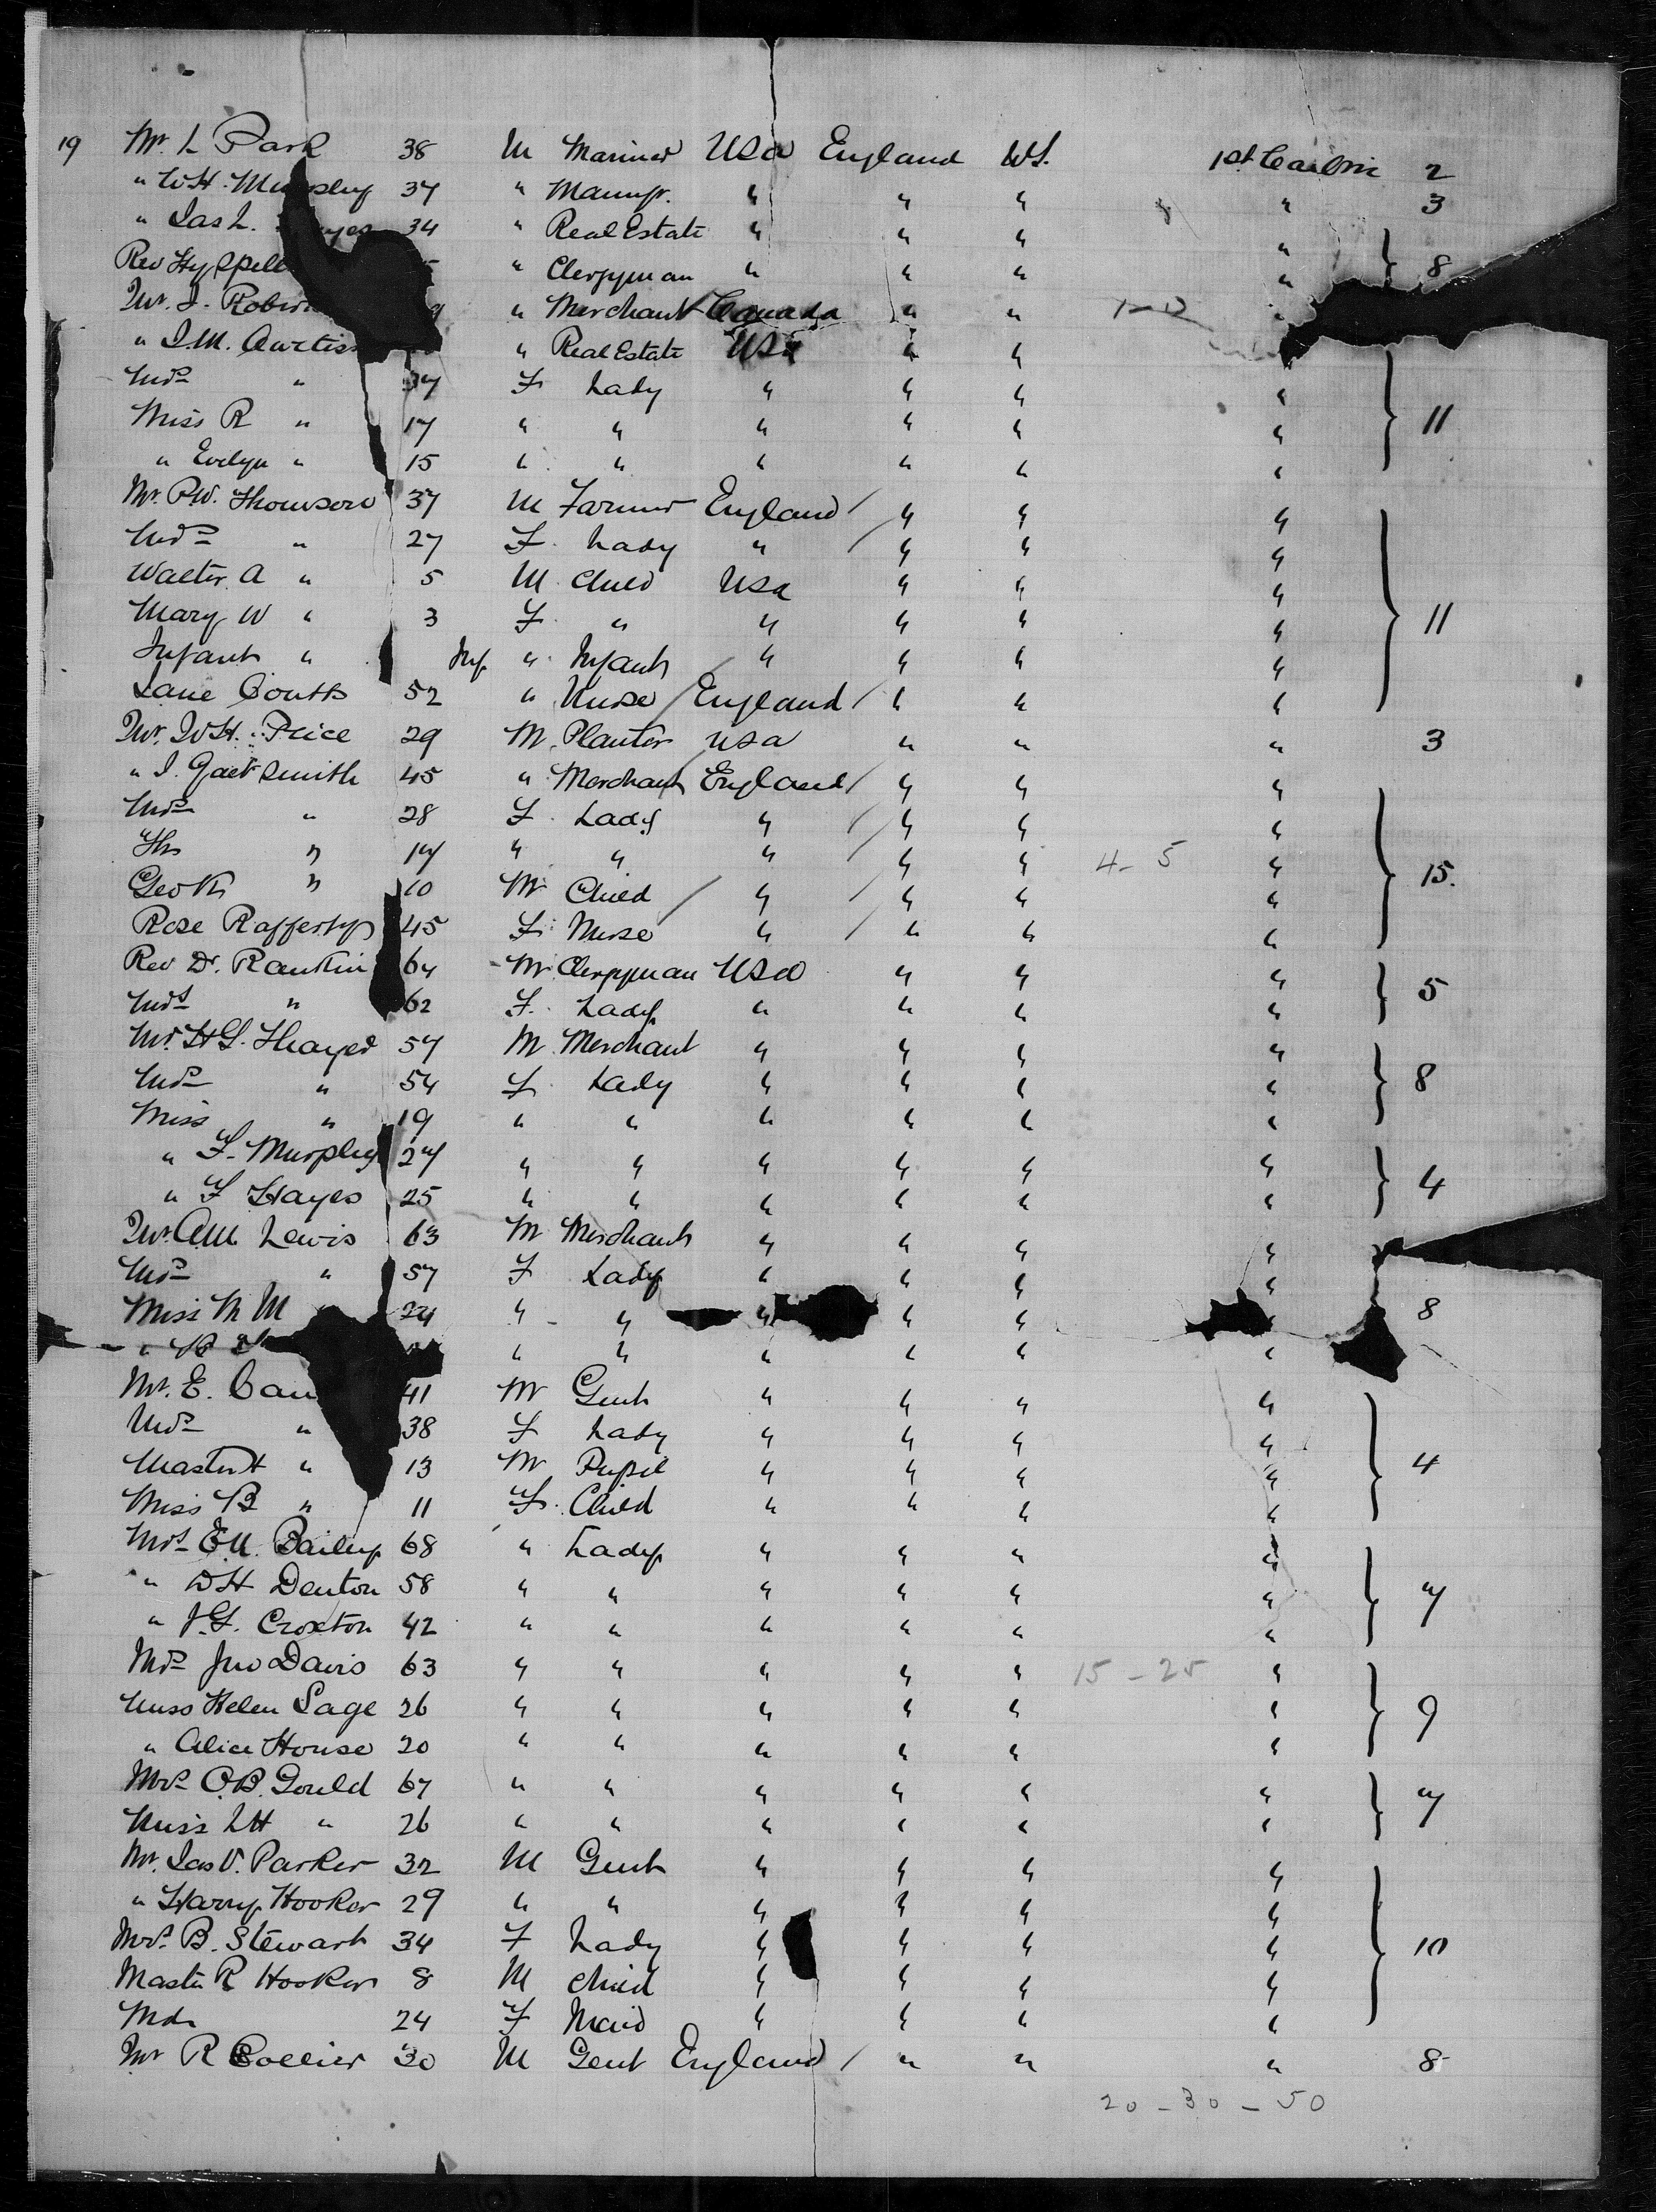 19 Mr. L Park 38 M Mariner USA England US. 1st Cabin 2
" W.H. Murphy 37 " Manufr. " " " " 3
" Jas L. 34 " Real Estate " " " "
Rev Hy " Clergyman " " " " 8
Mr. J. " Merchant Canada " "
" J.M. Curtiss " Real Estate USA " "
Mrs " 37 F Lady " " " "
Miss R " 17 " " " " " " 11
" Evelyn " 15 " " " " " "
Mr. P.W. Thomson 37 M Farmer England / " " "
Mrs " 27 F. Lady " / " " "
Walter A " 5 M Child USA " " "
Mary W " 3 F. " " " " " 11
Infant " Inf " Infant " " " "
Jane Coutts 52 " Nurse / England / " " "
Mr. W.H. Price 29 M. Planter USA " " " 3
" J. Smith 45 " Merchant England / " " "
Mrs " 28 F. Lady " / " " "
" 17 " " " / " " 4-5 "
Geo " 10 M Child / " / " " " 15.
Rose Rafferty 45 F. Nurse " / " " "
Rev Dr. Rankin 64 M Clergyman USA " " "
Mrs " 62 F. Lady " " " " 5
Mr. H.G. Thayer 57 M Merchant " " " "
Mrs " 54 F. Lady " " " " 8
Miss " 19 " " " " " "
" F. Murphy 27 " " " " " " 4
" F Hayes 25 " " " " " "
Mr. A.M. Lewis 63 M Merchant " " " "
Mrs " 57 F Lady " " " "
Miss M M 24 " " " " " " 8
" " " " " " "
Mr. E. 41 M Gent " " " "
Mrs " 38 F Lady " " " "
Master H " 13 M Pupil " " " " 4
Miss B " 11 F. Child " " " "
Mrs E.M. Bailey 68 " Lady " " " "
" D H Denton 58 " " " " " " 7
" J.G. Croxton 42 " " " " " "
Mrs Jno Davis 63 " " " " " 15-25 "
Miss Helen Sage 26 " " " " " " 9
" Alice House 20 " " " " " "
Mrs O.B. Gould 67 " " " " " " 7
Miss L H " 26 " " " " " "
Mr. Jas V. Parker 32 M Gent " " " "
" Harry Hooker 29 " " " " " "
Mrs. B. Stewart 34 F Lady " " " " 10
Master R Hooker 8 M Child " " " "
24 F Maid " " " "
Mr R Collier 30 M Gent England / " " " 8
20-30-50